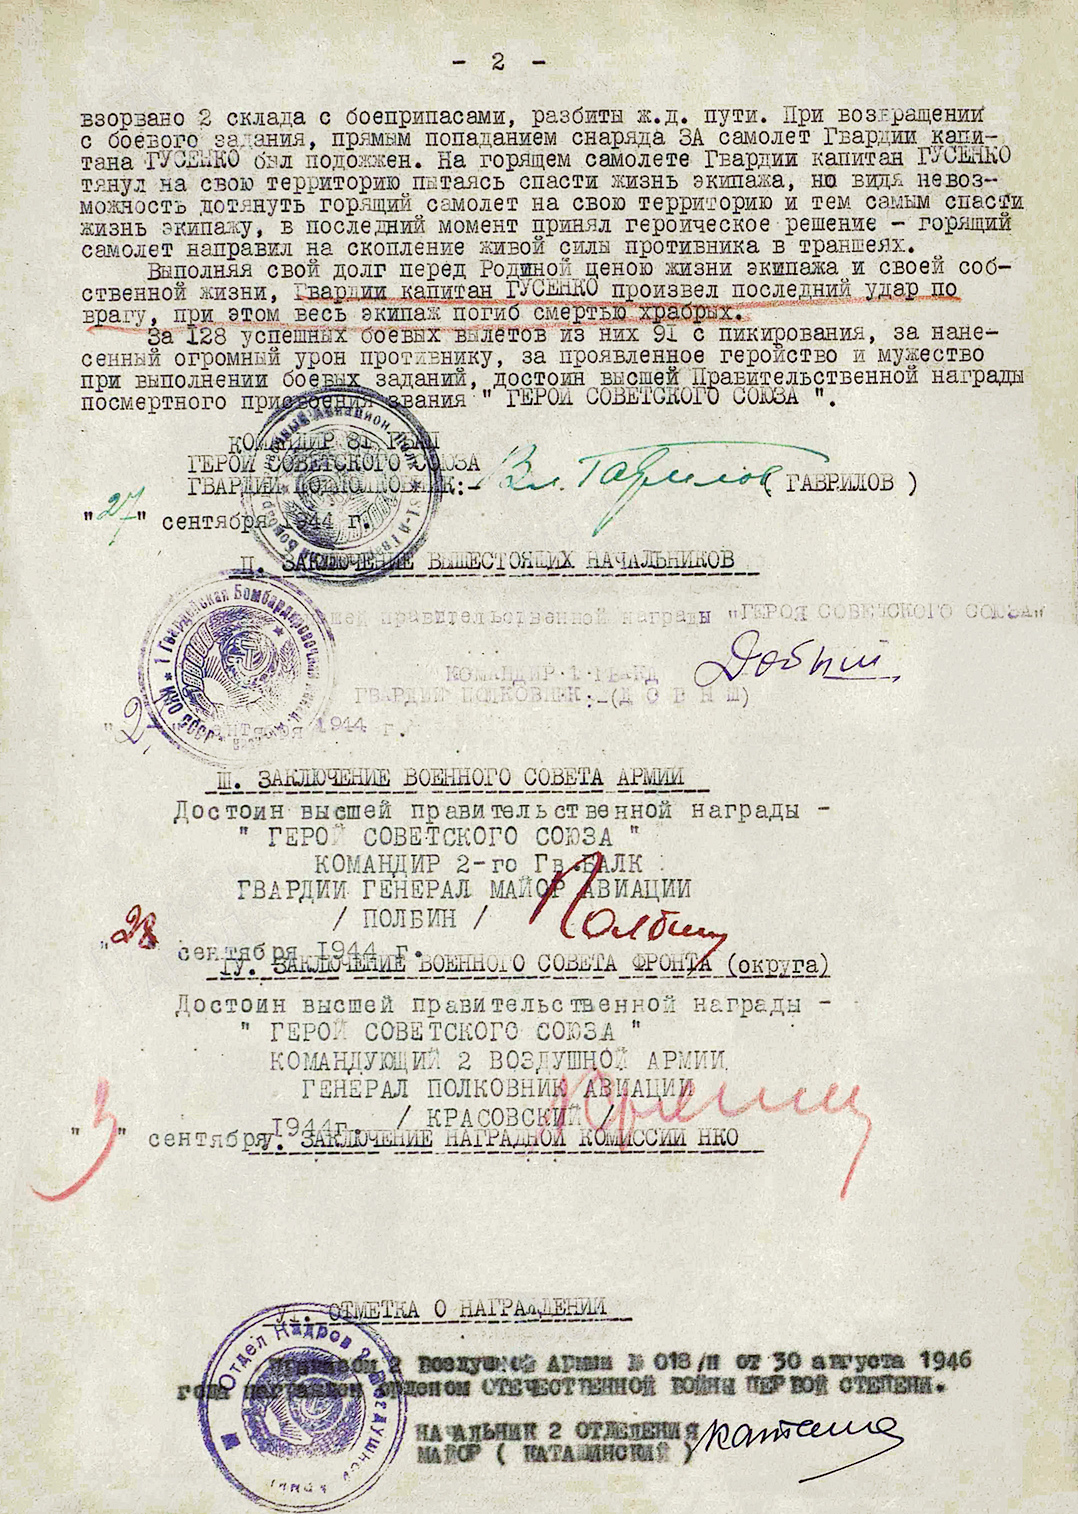 - 2 -
взорвано 2 склада с боеприпасами, разбиты ж.д. пути. При возвращении
с боевого задания, прямым попаданием снаряда ЗА самолет Гвардии капи-
тана ГУСЕНКО был подожжен. На горящем самолете Гвардии капитан ГУСЕНКО
тянул на свою территорию пытаясь спасти жизнь экипажа, но видя невоз-
можность дотянуть горящий самолет на свою территорию и тем самым спасти
жизнь экипажу, в последний момент принял героическое решение - горящий
самолет направил на скопление живой силы противника в траншеях.
Выполняя свой долг перед Родиной ценою жизни экипажа и своей соб-
ственной жизни, Гвардии капитан ГУСЕНКО произвел последний удар по
врагу, при этом весь экипаж погиб смертью храбрых.
За 128 успешных боевых вылетов из них 91 с пикирования, за нане-
сенный огромный урон противнику, за проявленное геройство и мужество
при выполнении боевых заданий, достоин высшей Правительственной награды
посмертного присвоения звания " ГЕРОЙ СОВЕТСКОГО СОЮЗА ".
КОМАНДИР 81 ГБАП
ГЕРОЙ СОВЕТСКОГО СОЮЗА
ГВАРДИИ ПОДПОЛКОВНИК:- Вл. Гаврилов ( ГАВРИЛОВ )
"27" сентября 1944 г.
П. ЗАКЛЮЧЕНИЕ ВЫШЕСТОЯЩИХ НАЧАЛЬНИКОВ
1 Гвардейская Бомбардировочная
шей правительственной награды "ГЕРОЯ СОВЕТСКОГО СОЮЗА"
КОМАНДИР 1 ГБАКД Добыш
ГВАРДИИ ПОЛКОВНИК:-(Д О Б Ы Ш)
сентября 1944 г.
Ш. ЗАКЛЮЧЕНИЕ ВОЕННОГО СОВЕТА АРМИИ
Достоин высшей правительственной награды -
" ГЕРОЙ СОВЕТСКОГО СОЮЗА "
КОМАНДИР 2-го Гв.БАЛК
ГВАРДИИ ГЕНЕРАЛ МАЙОР АВИАЦИИ
/ ПОЛБИН / Полбин
"28 сентября 1944 г.
IУ. ЗАКЛЮЧЕНИЕ ВОЕННОГО СОВЕТА ФРОНТА (округа)
Достоин высшей правительственной награды -
" ГЕРОЙ СОВЕТСКОГО СОЮЗА "
КОМАНДУЮЩИЙ 2 ВОЗДУШНОЙ АРМИИ
ГЕНЕРАЛ ПОЛКОВНИК АВИАЦИИ
/ КРАСОВСКИЙ /
" " сентября 1944г.
У. ЗАКЛЮЧЕНИЕ НАГРАДНОЙ КОМИССИИ НКО
УI. ОТМЕТКА О НАГРАЖДЕНИИ
Отдел Кадров 2 Воздушной Армии
Приказом 2 Воздушной Армии № 018/н от 30 августа 1946
года награжден орденом ОТЕЧЕСТВЕННОЙ ВОЙНЫ ПЕРВОЙ СТЕПЕНИ.
НАЧАЛЬНИК 2 ОТДЕЛЕНИЯ
МАЙОР ( КАТАШИНСКИЙ )